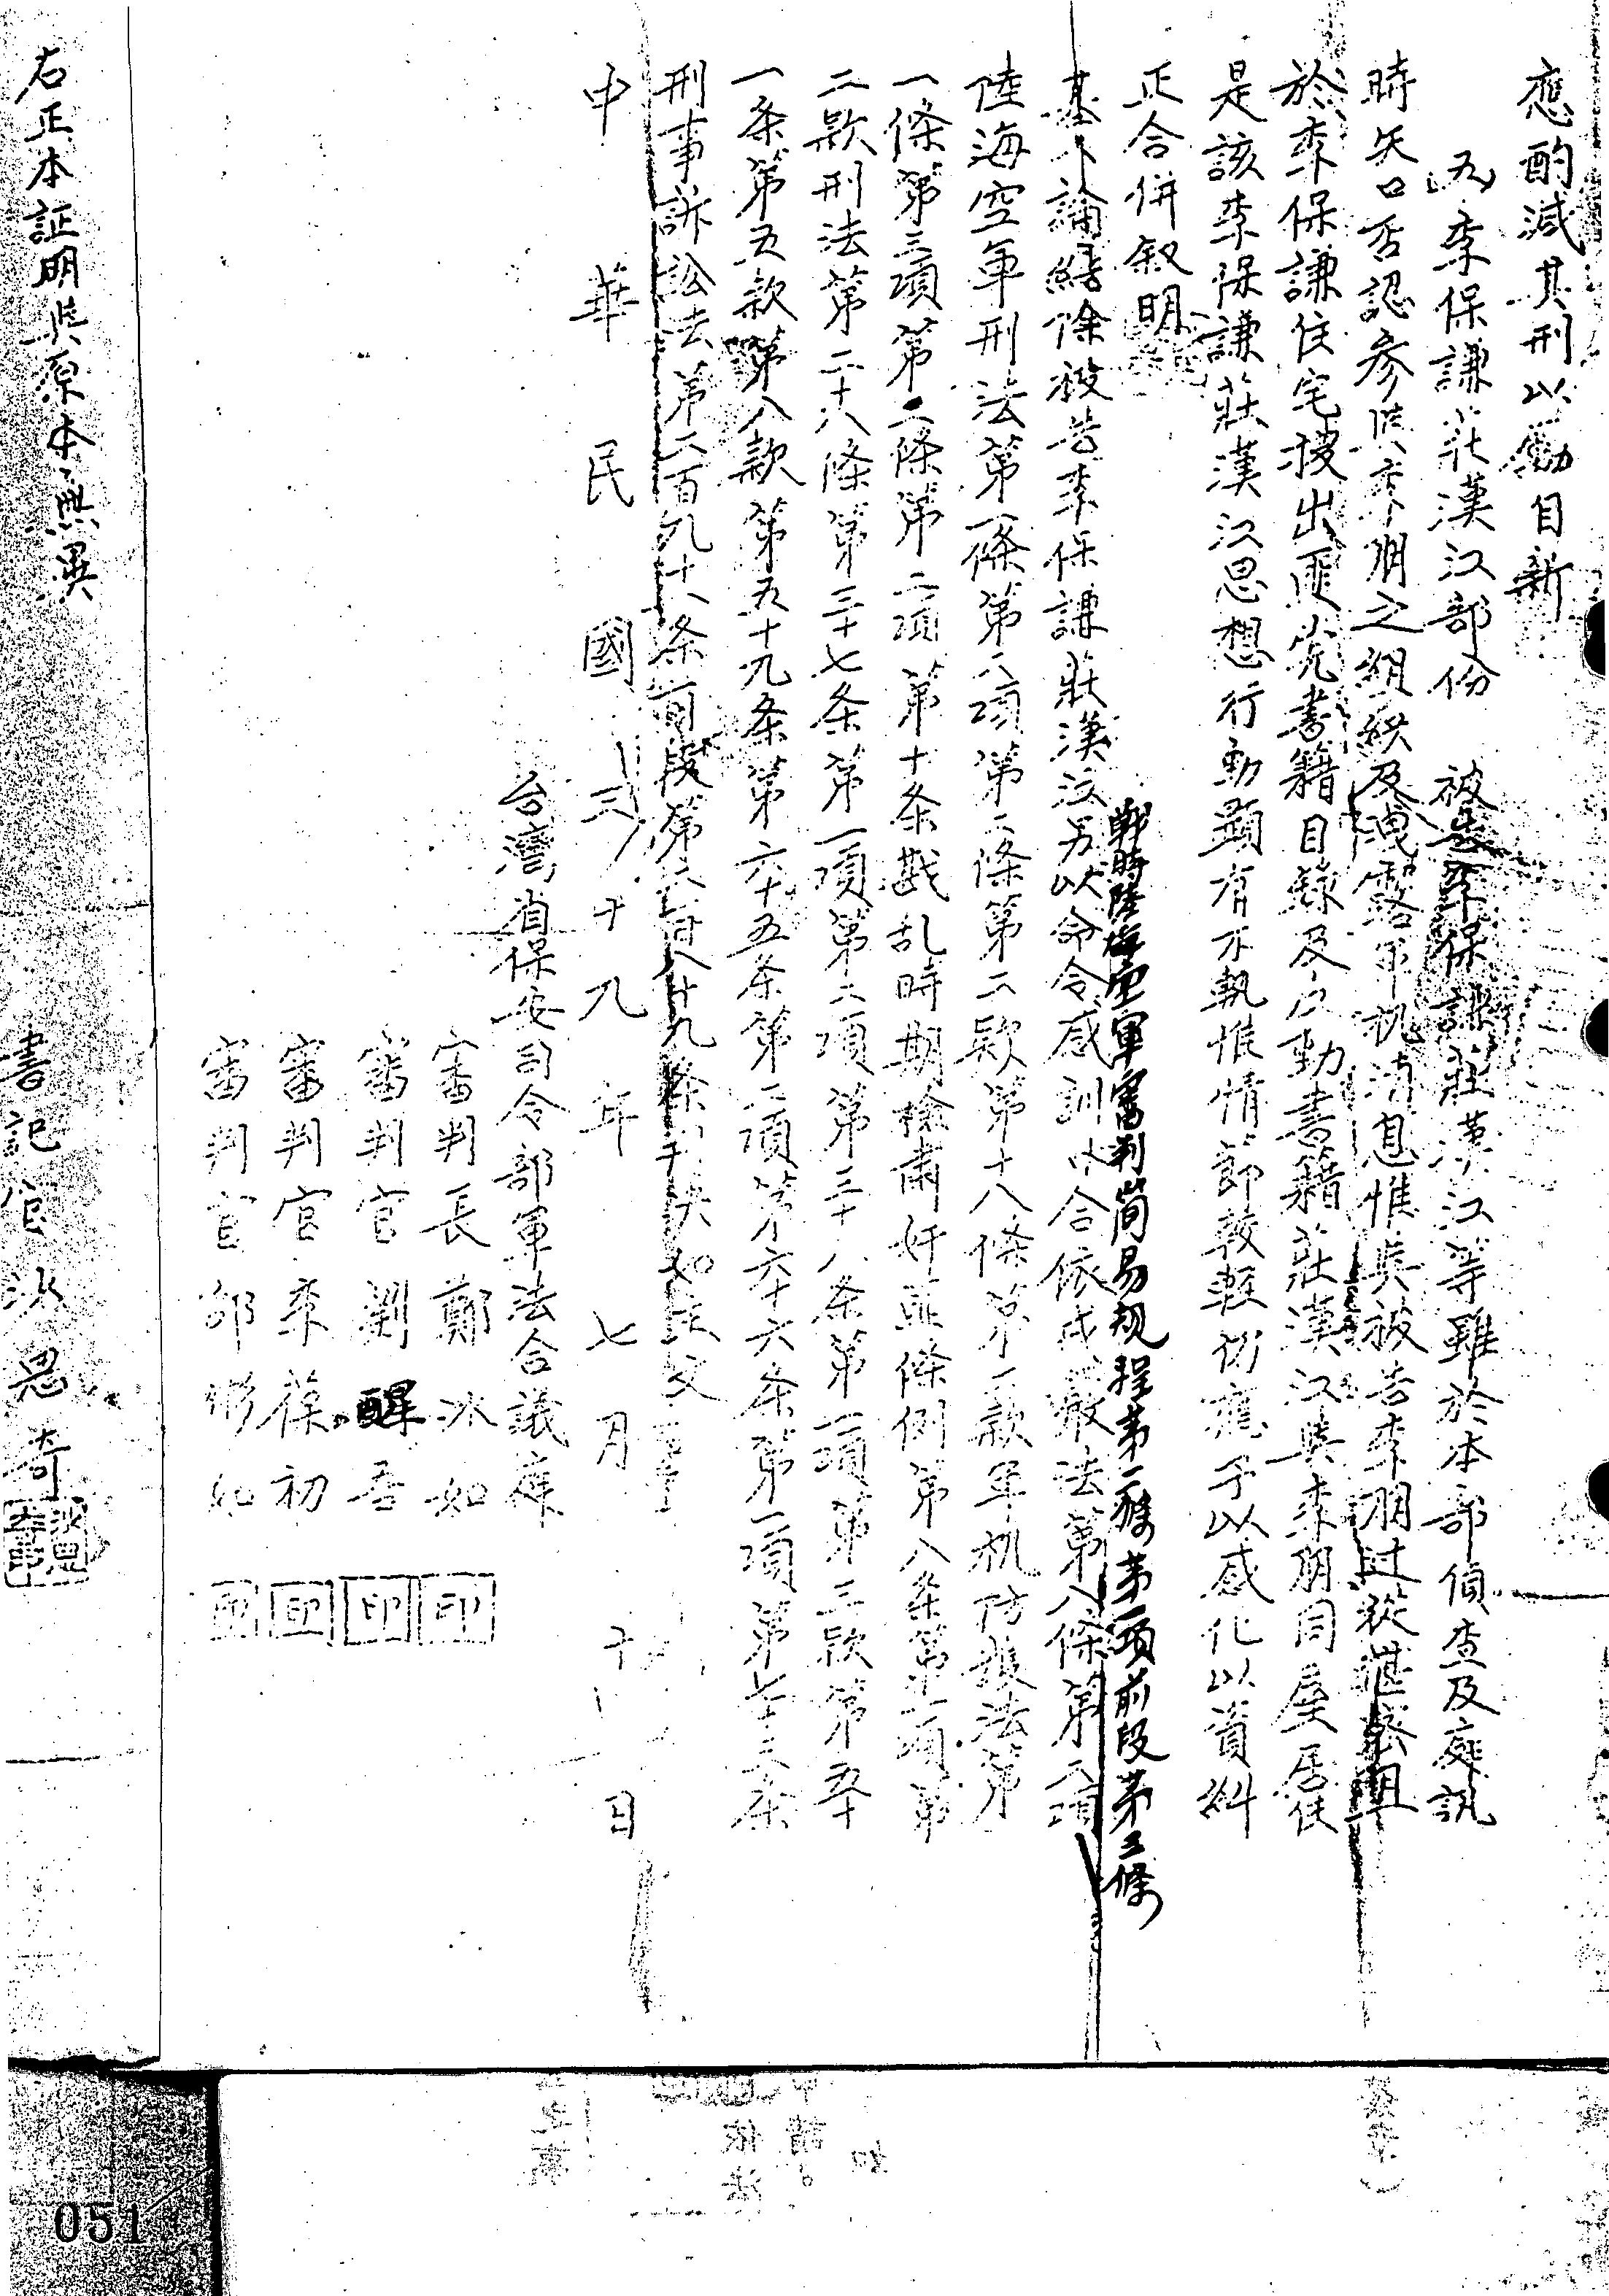 應酌減其刑以勵自新
(五)李保謙莊漢江部份 被告李保謙莊漢江等雖於本部偵查及庭訊
時矢口否認參與李朋之組織及洩露軍机消息惟與被告李朋过從甚密且
於李保謙住宅搜出匪党書籍目錄及反動書籍莊漢江與李朋同屋居住
是該李保謙莊漢江思想行動顯有不軌惟情節較輕併應予以感化以資糾
正合併叙明
戰時陸海空軍審判簡易規程第一條第一項前段第三條
基上論結除被告李保謙莊漢江另以命令感訓外合依戒嚴法第八條第二項
陸海空軍刑法第一條第二項第二條第二款第十八條第一款軍机防護法第
一條第三項第二條第二項第十条戡乱時期檢肅奸匪條例第八条第一項第
二款刑法第二十八條第三十七条第一項第二項第三十八条第一項第三款第五十
一条第五款第八款第五十九条第六十五条第二項第六十六条第一項第七十三条
刑事訴訟法第二百九十一条前段第二百九十九条判決如主文
台灣省保安司令部軍法合議庭
中華民國三十九年七月 十 日
審判長 鄭冰如 印
審判官 劉醒吾 印
審判官 李葆初 印
審判官 邵彬如 印
右正本証明與原本無異
書記官 冰思奇
051